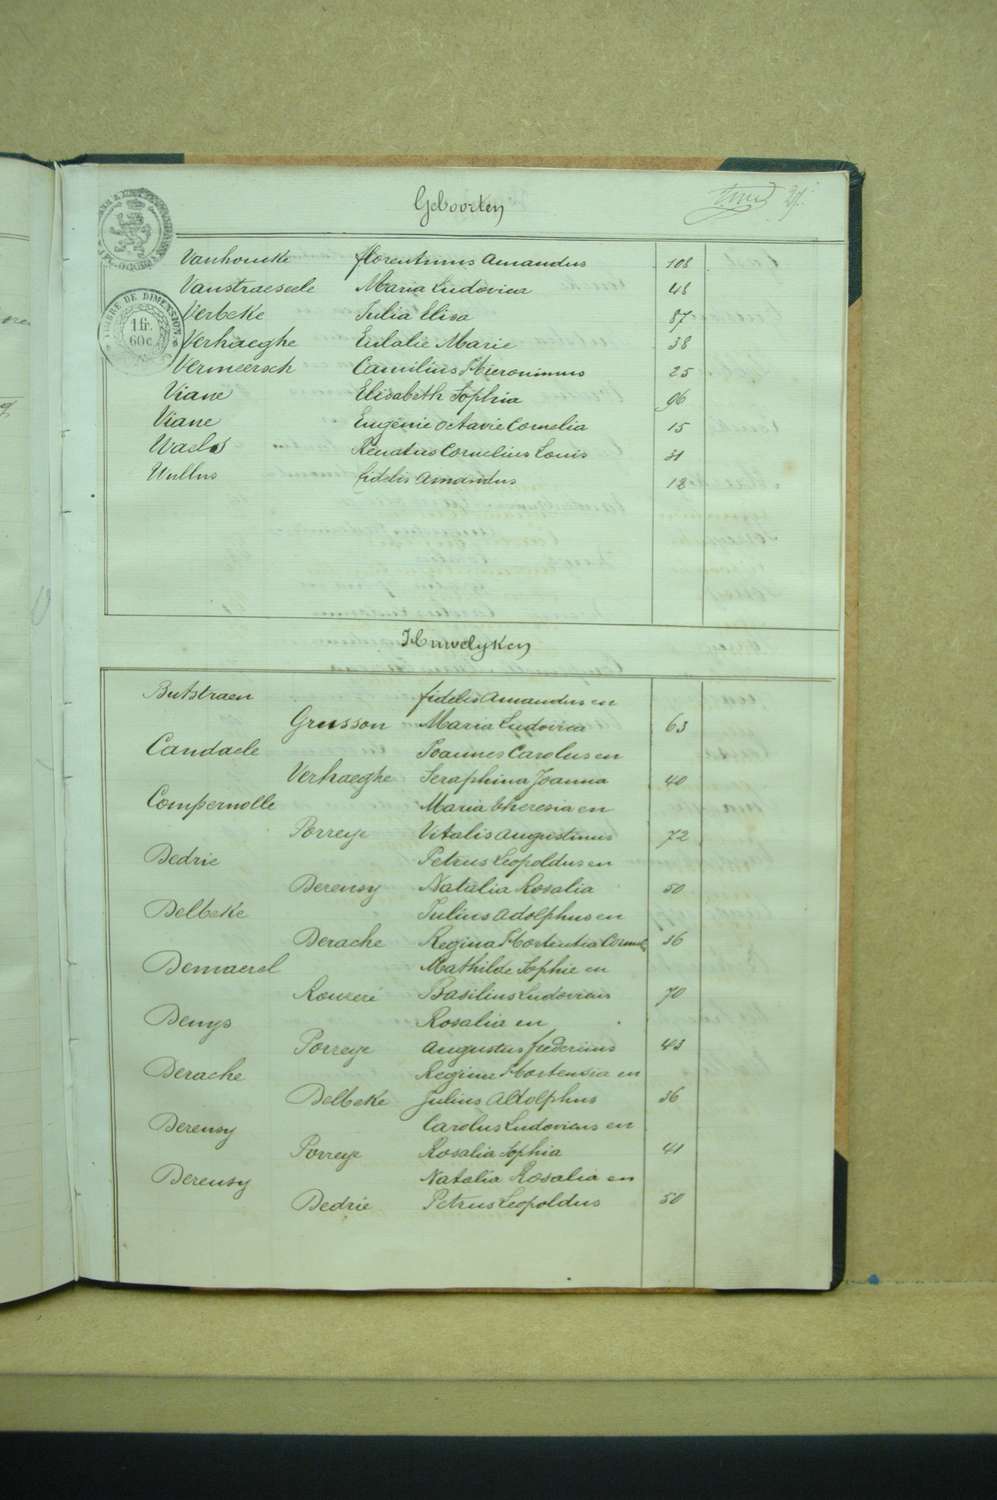 Geboorten
27
TIMBRE DE DIMENSION
1 fr.
60 c.
Vanhoucke florentinus Amandus 108
Vanstraeseele Maria Ludovica 48
Verbeke Julia Elisa 87
Verhaeghe Eulalie Marie 38
Vermeersch Camilius Hieronimus 25
Viane Elisabeth Sophia 96
Viane Eugenie Octavie Cornelia 15
Waels Renatus Cornelius Louis 31
Wullus fidelis Amandus 18
Huwelyken
Butstraen fidelis Amandus en
Grusson Maria Ludovica 63
Candaele Joannes Carolus en
Verhaeghe Seraphina Joanna 40
Compernolle Maria theresia en
Porreye Vitalis Augustinus 72
Dedrie Petrus Leopoldus en
Derensy Natalia Rosalia 50
Delbeke Julius Adolphus en
Derache Regina Hortentia 36
Demaerel Mathilde Sophie en
Rouzere Basilius Ludovicus 70
Denys Rosalia en
Porreye Augustus 43
Derache Regine Hortensia en
Delbeke Julius Aldolphus 36
Derensy Carolus Ludovicus en
Porreye Rosalia Sophia 41
Derensy Natalia Rosalia en
Dedrie Petrus Leopoldus 50